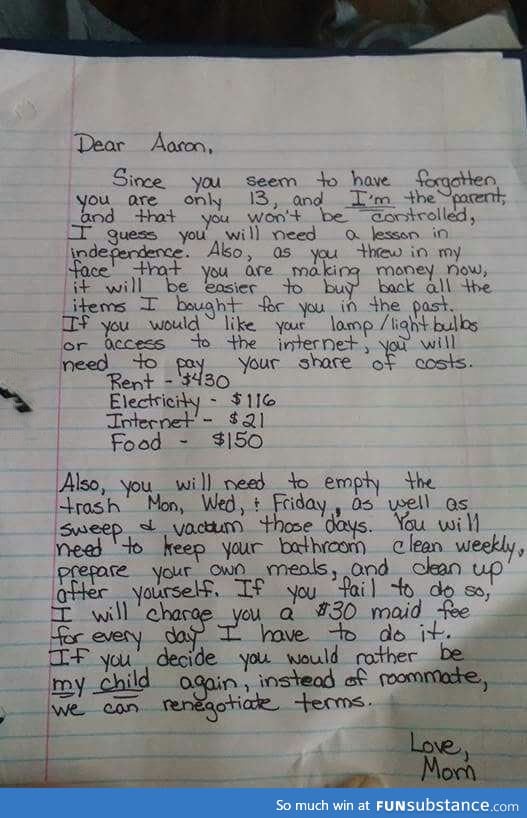 Dear Aaron,
Since you seem to have forgotten
you are only 13, and I'm the parent,
and that you won't be controlled,
I guess you will need a lesson in
independence. Also, as you threw in my
face that you are making money now,
it will be easier to buy back all the
items I bought for you in the past.
If you would like your lamp/lightbulbs
or access to the internet, you will
need to pay your share of costs.
Rent - $430
Electricity - $116
Internet - $21
Food - $150
Also, you will need to empty the
trash Mon, Wed, + Friday, as well as
sweep & vacuum those days. You will
need to keep your bathroom clean weekly,
prepare your own meals, and clean up
after yourself. If you fail to do so,
I will charge you a $30 maid fee
for every day I have to do it.
If you decide you would rather be
my child again, instead of roommate,
we can renegotiate terms.
Love,
Mom
So much win at FUNsubstance.com